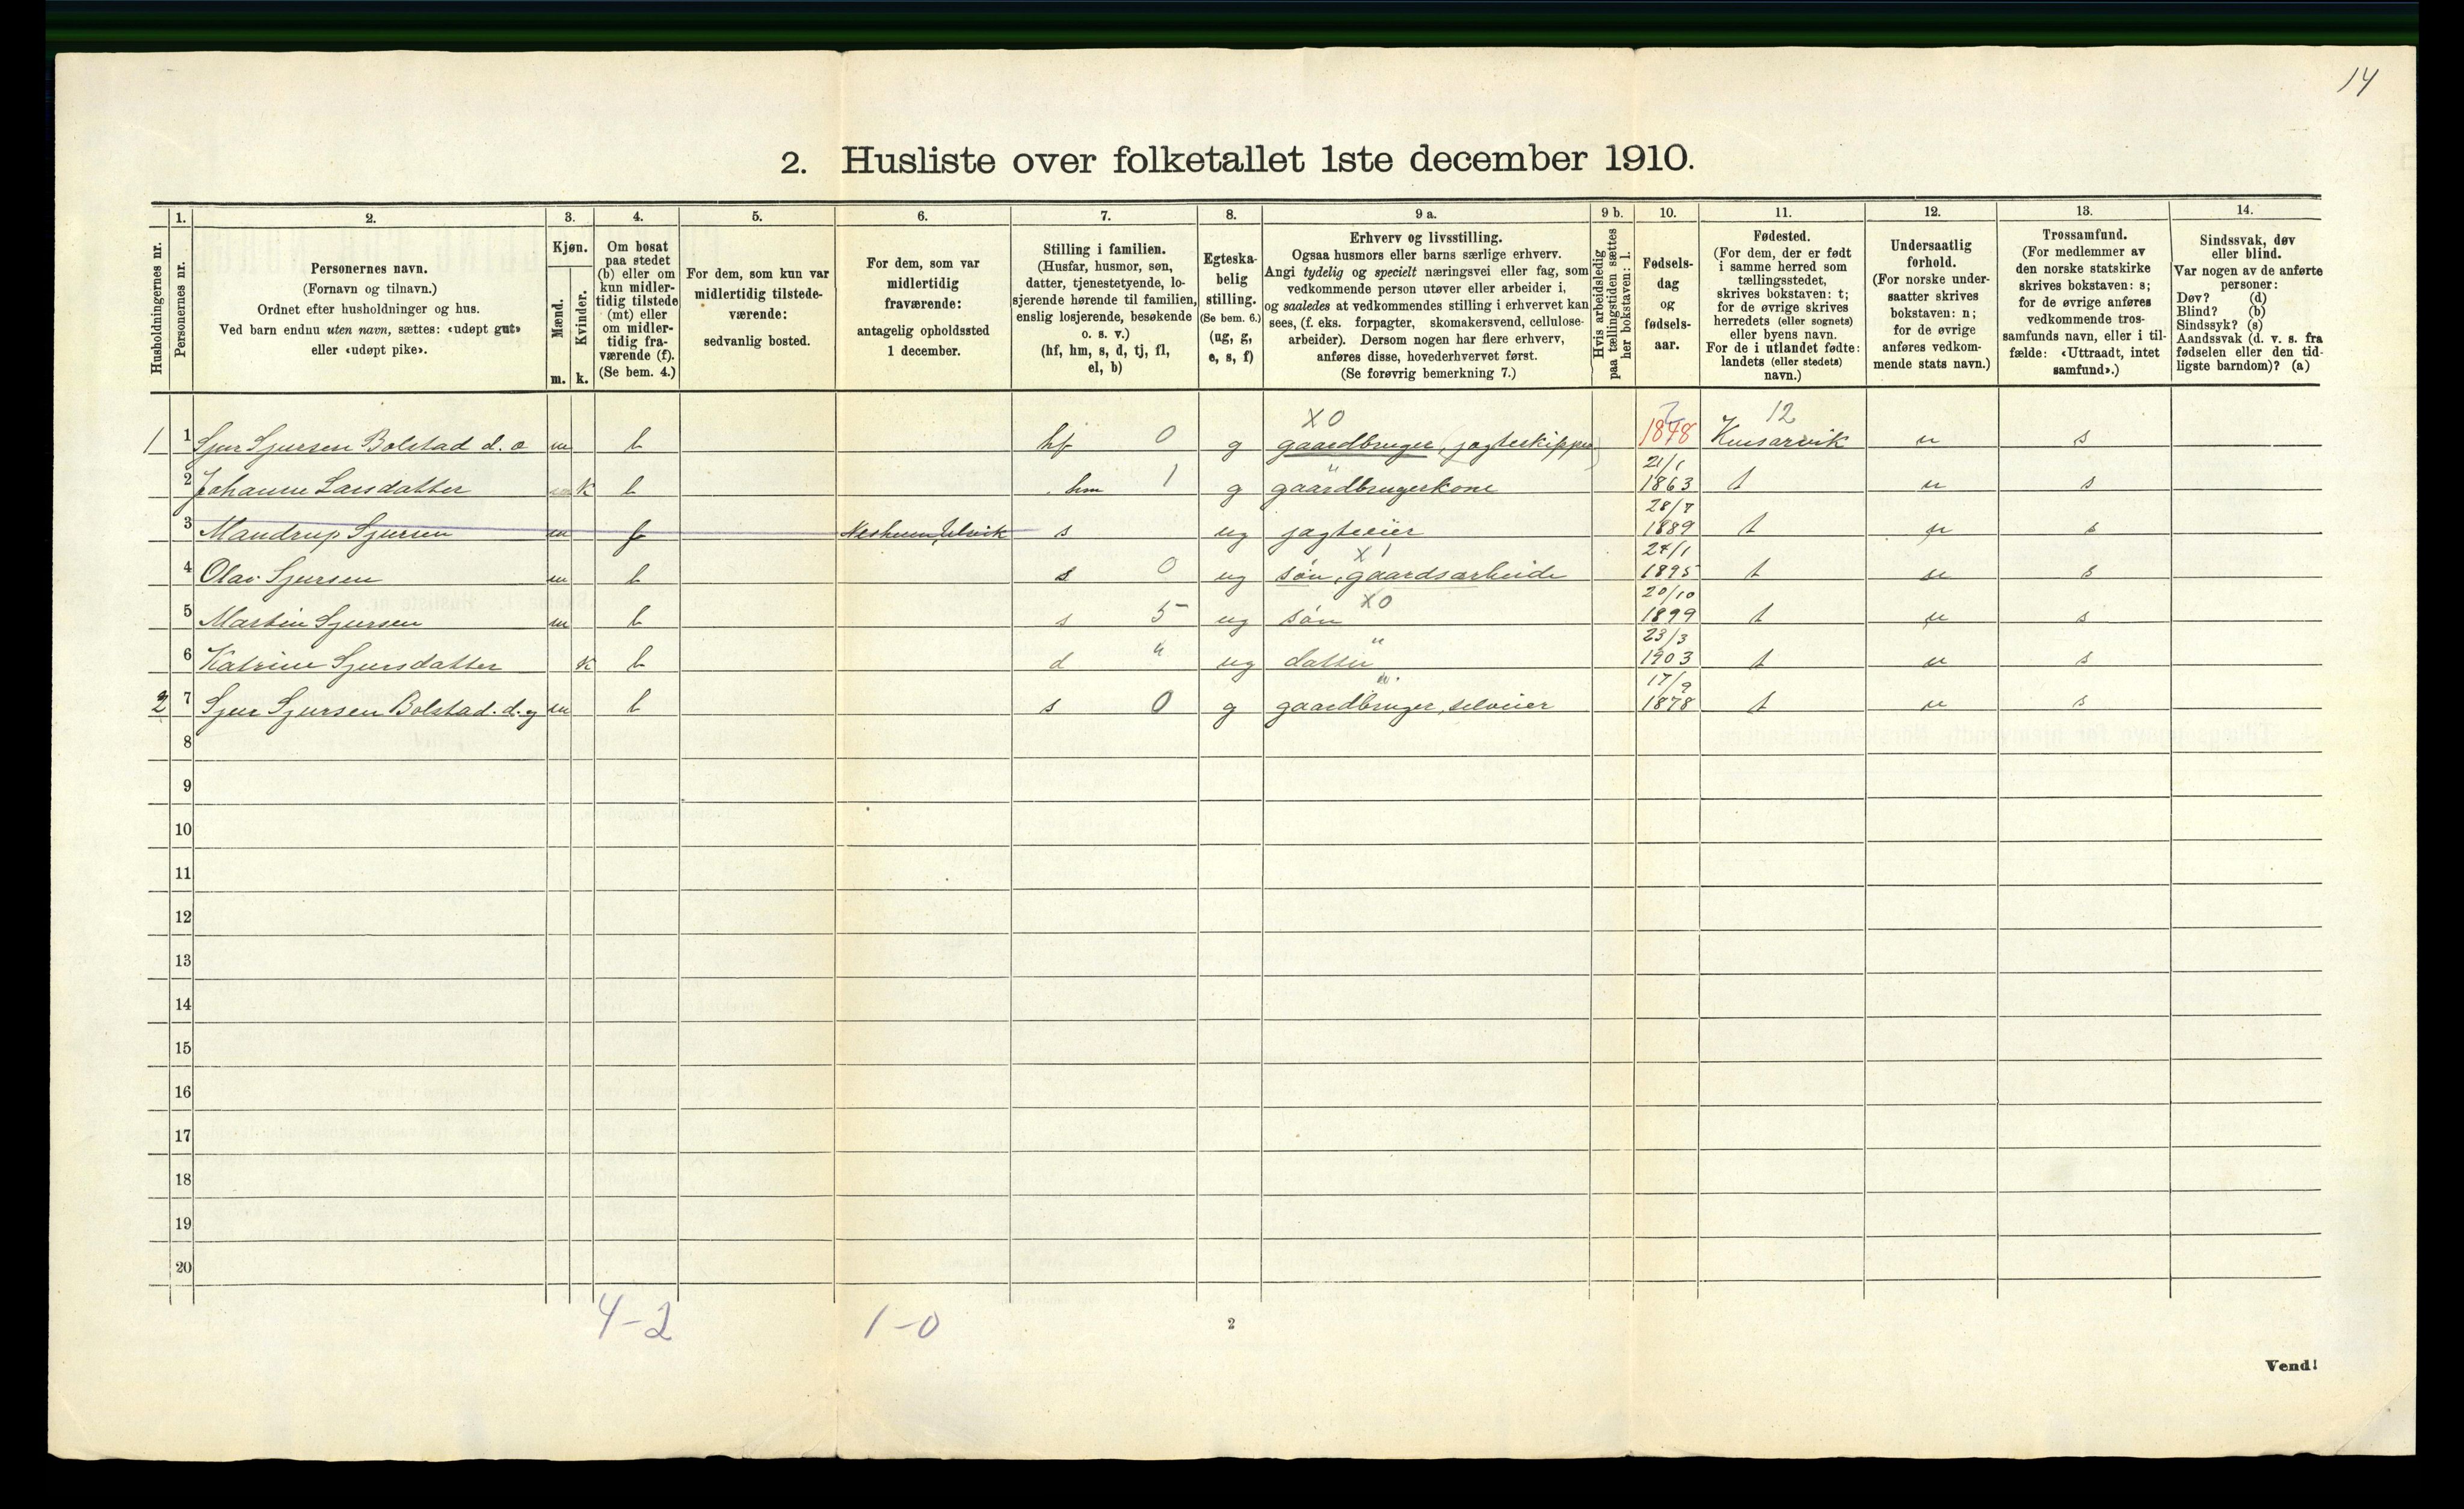 14
2. Husliste over folketallet 1ste december 1910.
Husholdningernes nr.
1.
Personernes nr.
2.
Personernes navn.
(Fornavn og tilnavn.)
Ordnet efter husholdninger og hus.
Ved barn endnu uten navn, sættes: «udøpt gut»
eller «udøpt pike».
3.
Kjøn.
Mænd.
m.
Kvinder.
k.
4.
Om bosat
paa stedet
(b) eller om
kun midler-
tidig tilstede
(mt) eller
om midler-
tidig fra-
værende (f).
(Se bem. 4.)
5.
For dem, som kun var
midlertidig tilstede-
værende:
sedvanlig bosted.
6.
For dem, som var
midlertidig
fraværende:
antagelig opholdssted
1 december.
7.
Stilling i familien.
(Husfar, husmor, søn,
datter, tjenestetyende, lo-
sjerende hørende til familien,
enslig losjerende, besøkende
o. s. v.)
(hf, hm, s, d, tj, fl,
el, b)
8.
Egteska-
belig
stilling.
(Se bem. 6.)
(ug, g,
e, s, f)
9 a.
Erhverv og livsstilling.
Ogsaa husmors eller barns særlige erhverv.
Angi tydelig og specielt næringsvei eller fag, som
vedkommende person utøver eller arbeider i,
og saaledes at vedkommendes stilling i erhvervet kan
sees, (f. eks. forpagter, skomakersvend, cellulose-
arbeider). Dersom nogen har flere erhverv,
anføres disse, hovederhvervet først.
(Se forøvrig bemerkning 7.)
9 b.
Hvis arbeidsledig
paa tællingstiden sættes
her bokstaven: l.
10.
Fødsels-
dag
og
fødsels-
aar.
11.
Fødested.
(For dem, der er født
i samme herred som
tællingsstedet,
skrives bokstaven: t;
for de øvrige skrives
herredets (eller sognets)
eller byens navn.
For de i utlandet fødte:
landets (eller stedets)
navn.)
12.
Undersaatlig
forhold.
(For norske under-
saatter skrives
bokstaven: n;
for de øvrige
anføres vedkom-
mende stats navn.)
13.
Trossamfund.
(For medlemmer av
den norske statskirke
skrives bokstaven: s;
for de øvrige anføres
vedkommende tros-
samfunds navn, eller i til-
fælde: «Uttraadt, intet
samfund».)
14.
Sindssvak, døv
eller blind.
Var nogen av de anførte
personer:
Døv? (d)
Blind? (b)
Sindssyk? (s)
Aandssvak (d. v. s. fra
fødselen eller den tid-
ligste barndom)? (a)
X 0 12
1 1 Sjur Sjursen Bolstad d. æ m b hf 0 g gaardbruger, jagteskipper 1848 Kinsarvik n s
2 Johanne Larsdatter k b hm 1 g gaardbrugerkone 21/1 1863 t n s
3 Mandrup Sjursen m f Nesheim, Ulvik s ug jagteeier 1889 t n s
4 Olav Sjursen m b s 0 ug søn, gaardsarbeide X 1 24/1 1895 t n s
5 Martin Sjursen m b s 5 ug søn X 0 20/10 1899 t n s
6 Katrine Sjursdatter k b d " ug datter " 23/3 1903 t n s
2 7 Sjur Sjursen Bolstad d. y m b s 0 g gaardbruger, selveier 17/9 1878 t n s
8
9
10
11
12
13
14
15
16
17
18
19
20
4-2 1-0
2
Vend!